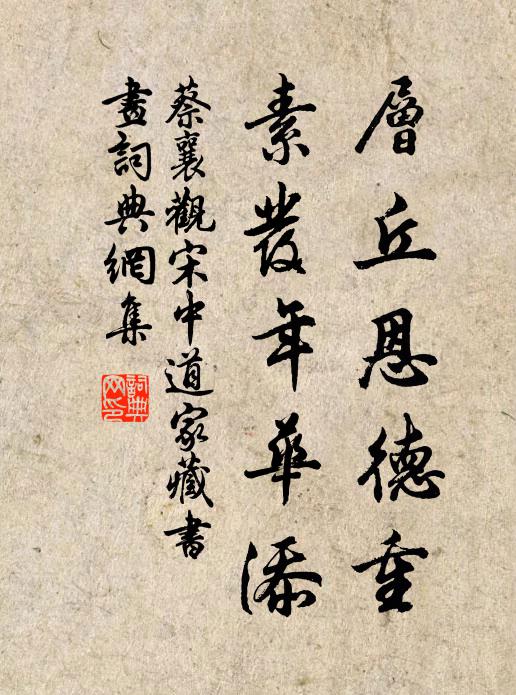 層丘恩德重
素發年華添
蔡襄觀宋中道家藏書
畫詞典網集
詞典網印